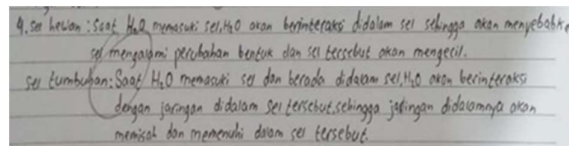 4. sel hewan : Saat H2O memasuki sel, H2O akan berinteraksi didalam sel sehingga akan menyebabka
sel mengalami perubahan bentuk dan sel tersebut akan mengecil.
sel tumbuhan : Saat H2O memasuki sel dan berada didalam sel, H2O akan berinteraksi
dengan jaringan didalam sel tersebut, sehingga jaringan didalamnya akan
memisah dan memenuhi dalam sel tersebut.